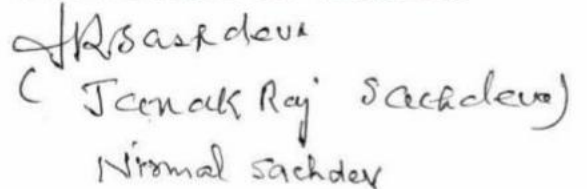 JRSachdeva
( Janak Raj Sachdeva)
Nirmal Sachdev